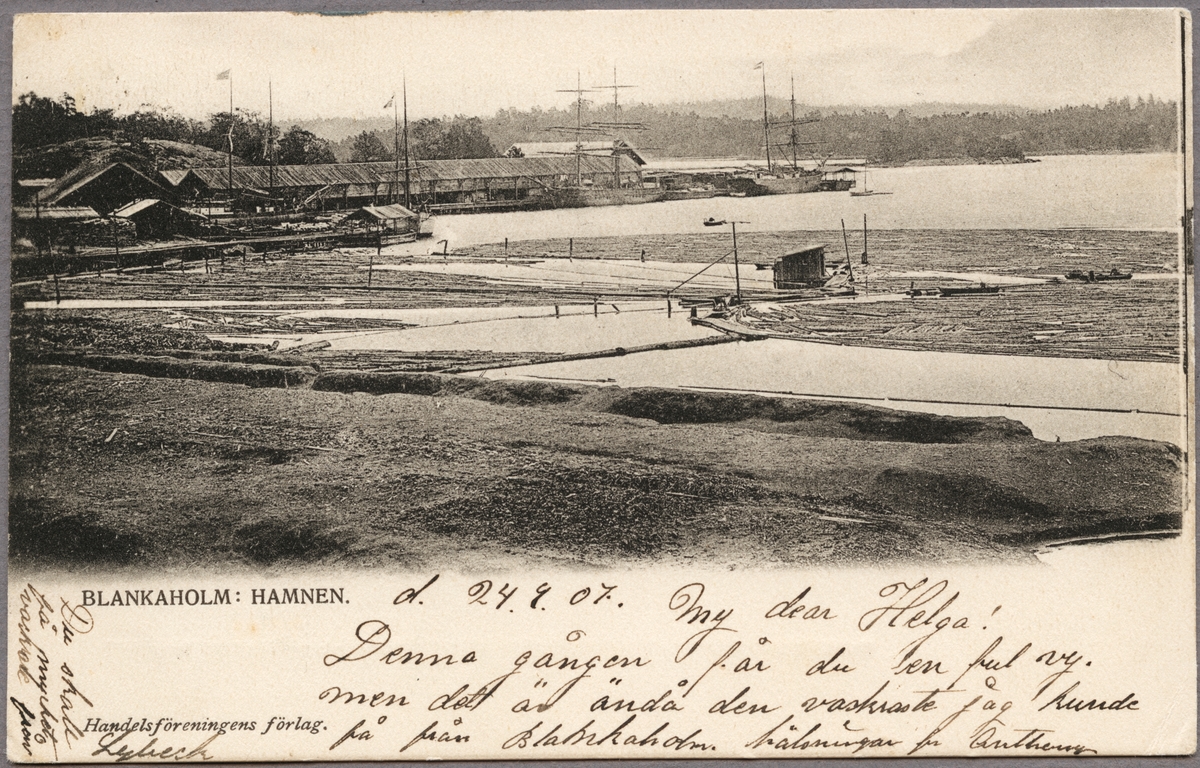 BLANKAHOLM: HAMNEN.
d. 24.9.07. My dear Helga!
Denna gången får du en ful vy.
men det är ändå den vackraste jag kunde
få från Blankaholm. hälsningar fr Anthemy
Handelsföreningens förlag.
Du skall
få mycket
vackrare från
Lybeck